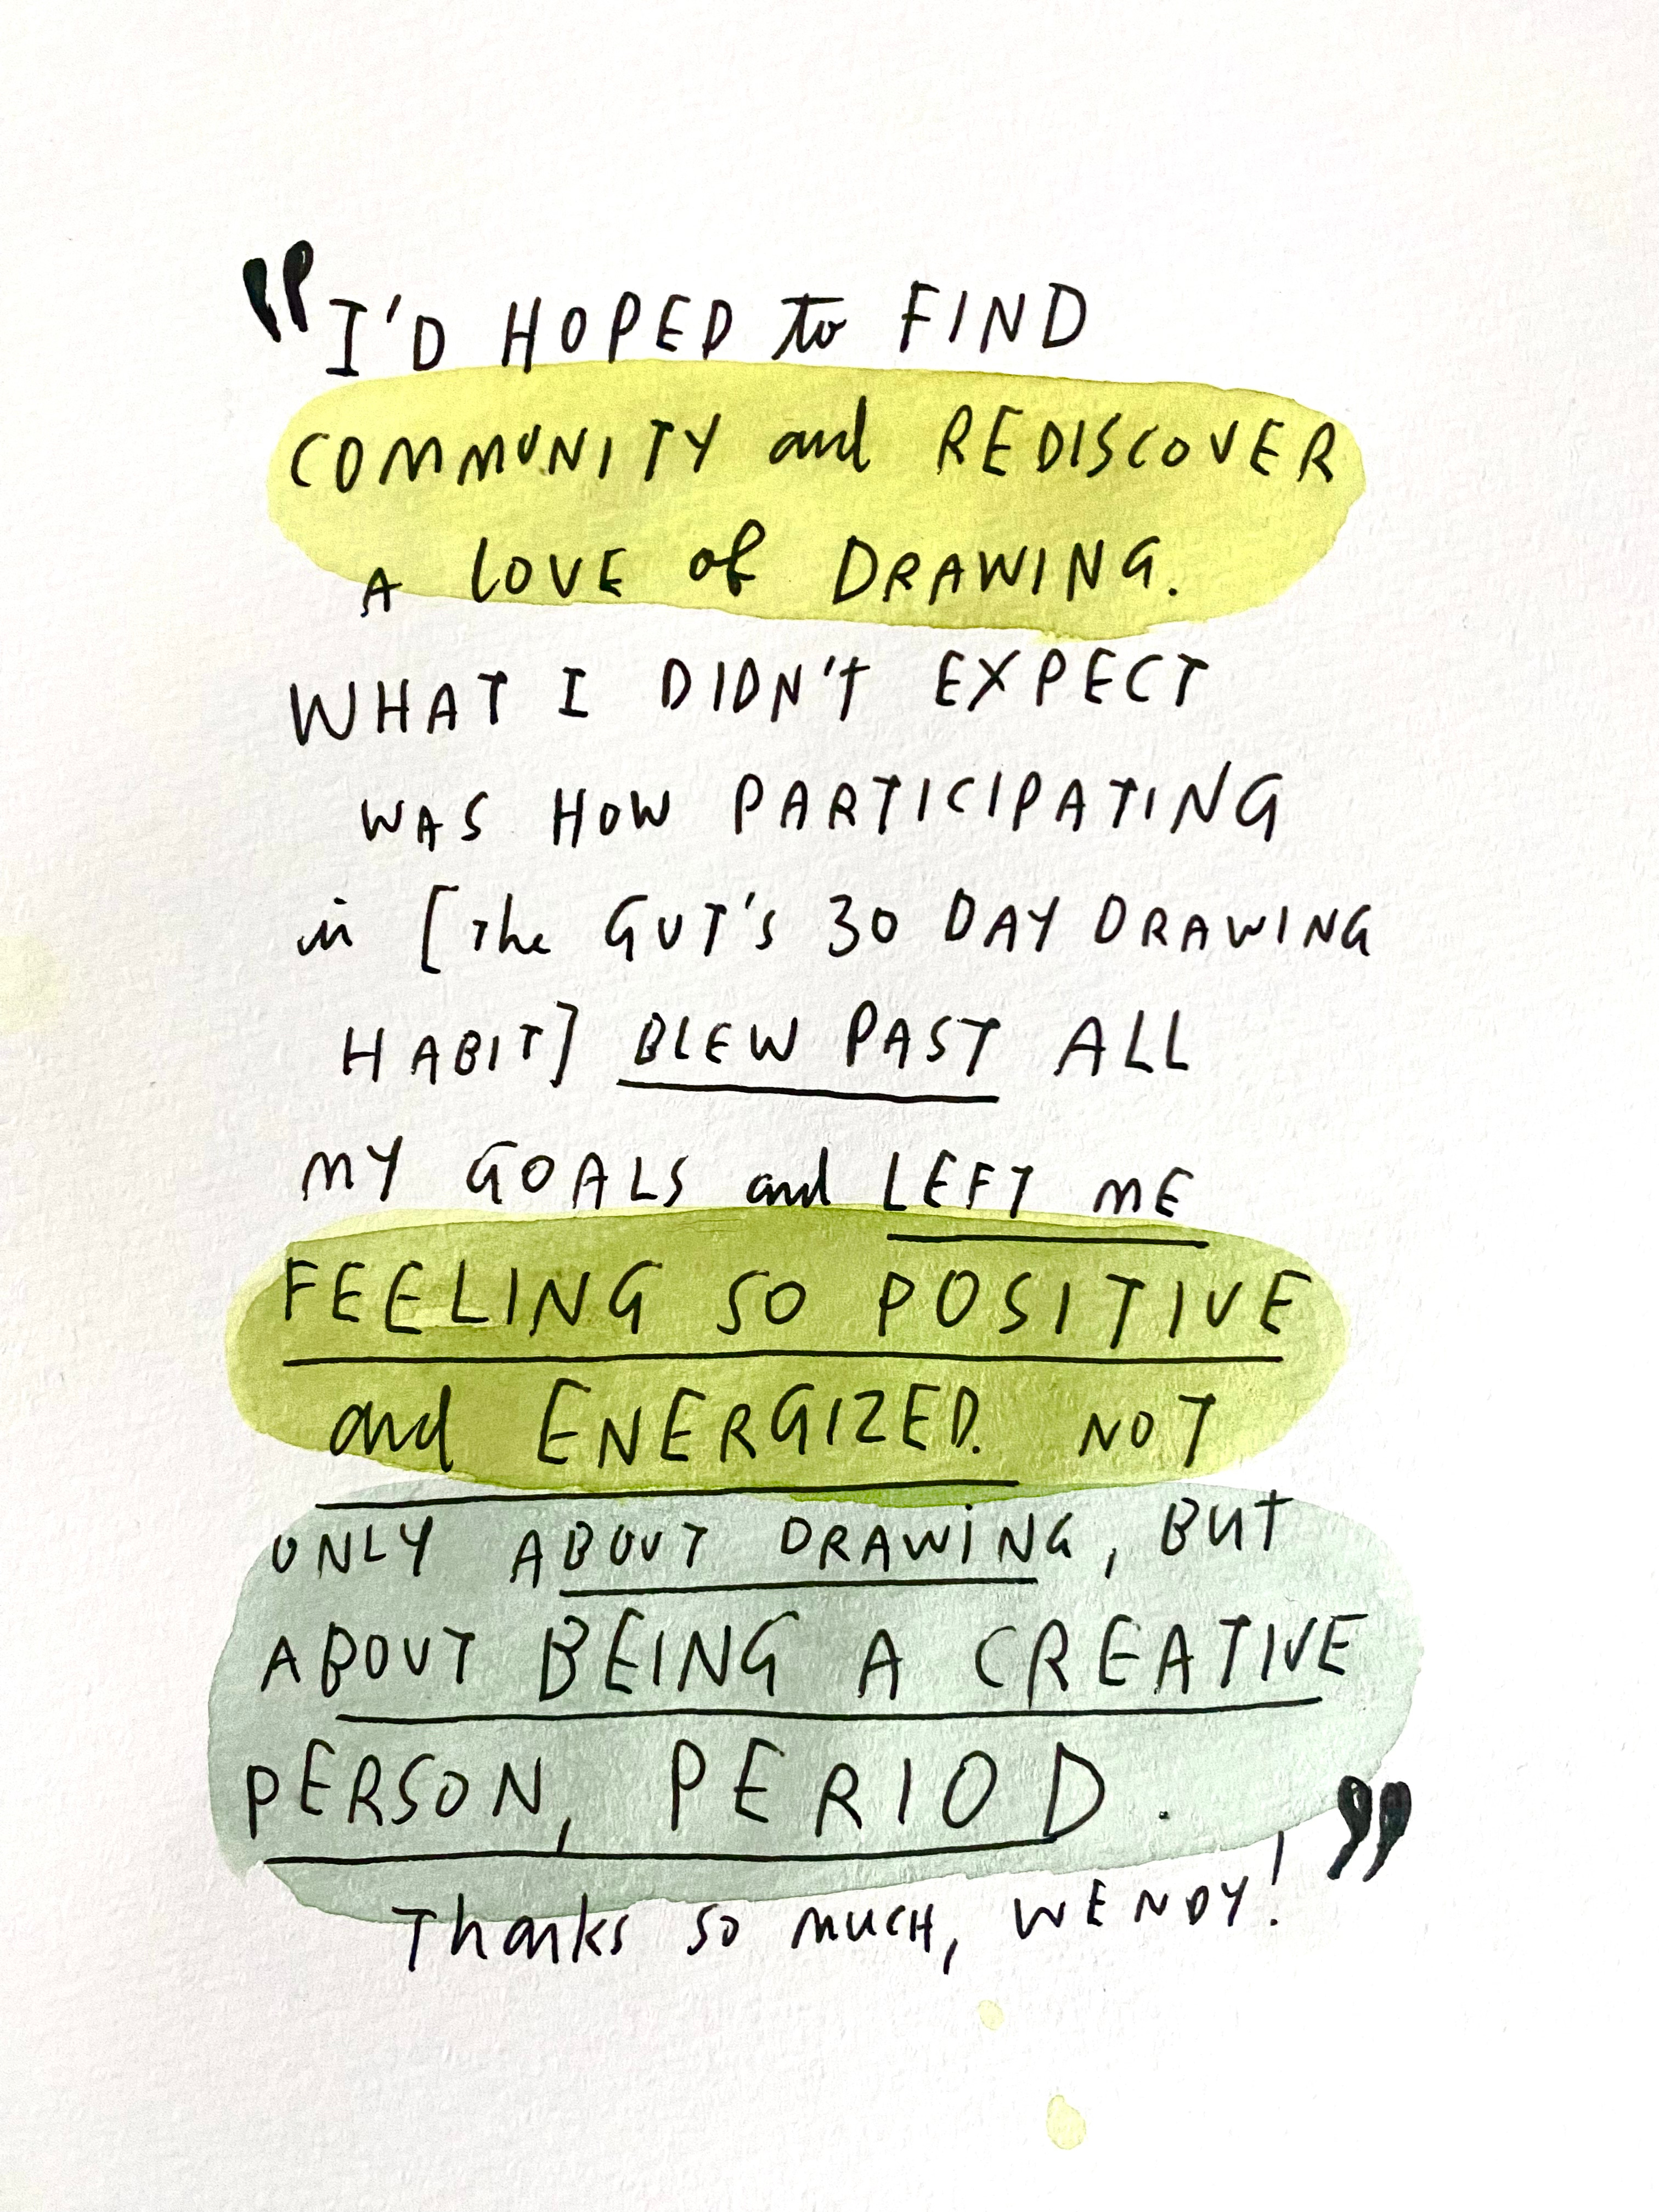 "I'D HOPED to FIND
COMMUNITY and REDISCOVER
A LOVE of DRAWING.
WHAT I DIDN't EXPECT
WAS HOW PARTICIPATING
in [The GUT's 30 DAY DRAWING
HABIT] BLEW PAST ALL
MY GOALS and LEFT ME
FEELING SO POSITIVE
and ENERGIZED. NOT
ONLY ABOUT DRAWING, BUt
ABOUT BEING A CREATIVE
PERSON, PERIOD.
Thanks so MUCH, WENDY!"